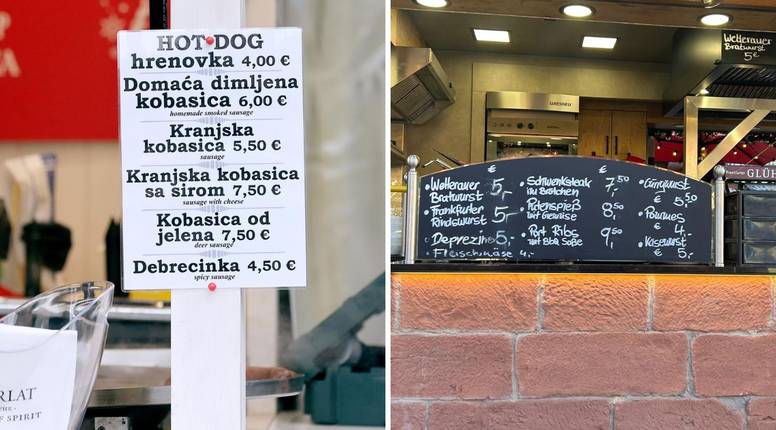 HOT DOG
hrenovka 4,00 €
Domaća dimljena
kobasica 6,00 €
homemade smoked sausage
Kranjska
kobasica 5,50 €
sausage
Kranjska kobasica
sa sirom 7,50 €
sausage with cheese
Kobasica od
jelena 7,50 €
deer sausage
Debrecinka 4,50 €
spicy sausage
RLAT
-THE-
OF SPIRIT
Wetterauer
Bratwurst
5€
€
• Wetterauer 5,-
Bratwurst
• Frankfurter 5,-
Rindswurst
• Depreziner 5,-
Fleischkäse 4,-
€
• Schwenksteak 7,50
im Brötchen
• Putenspieß 8,50
mit Gemüse
• Pork Ribs 9,50
mit BBQ Soße
• Currywurst
€ 5,50
• Pommes
€ 4,-
• Käsewurst
€ 5,-
GLÜH